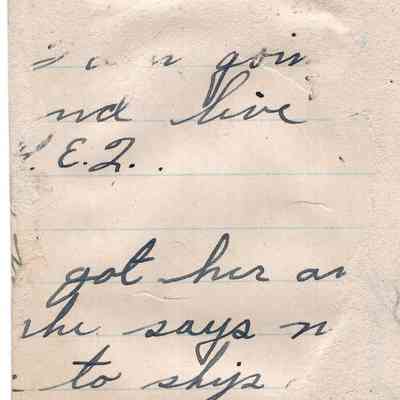 goin
nd live
E.Q..
got her an
she says n
to ship